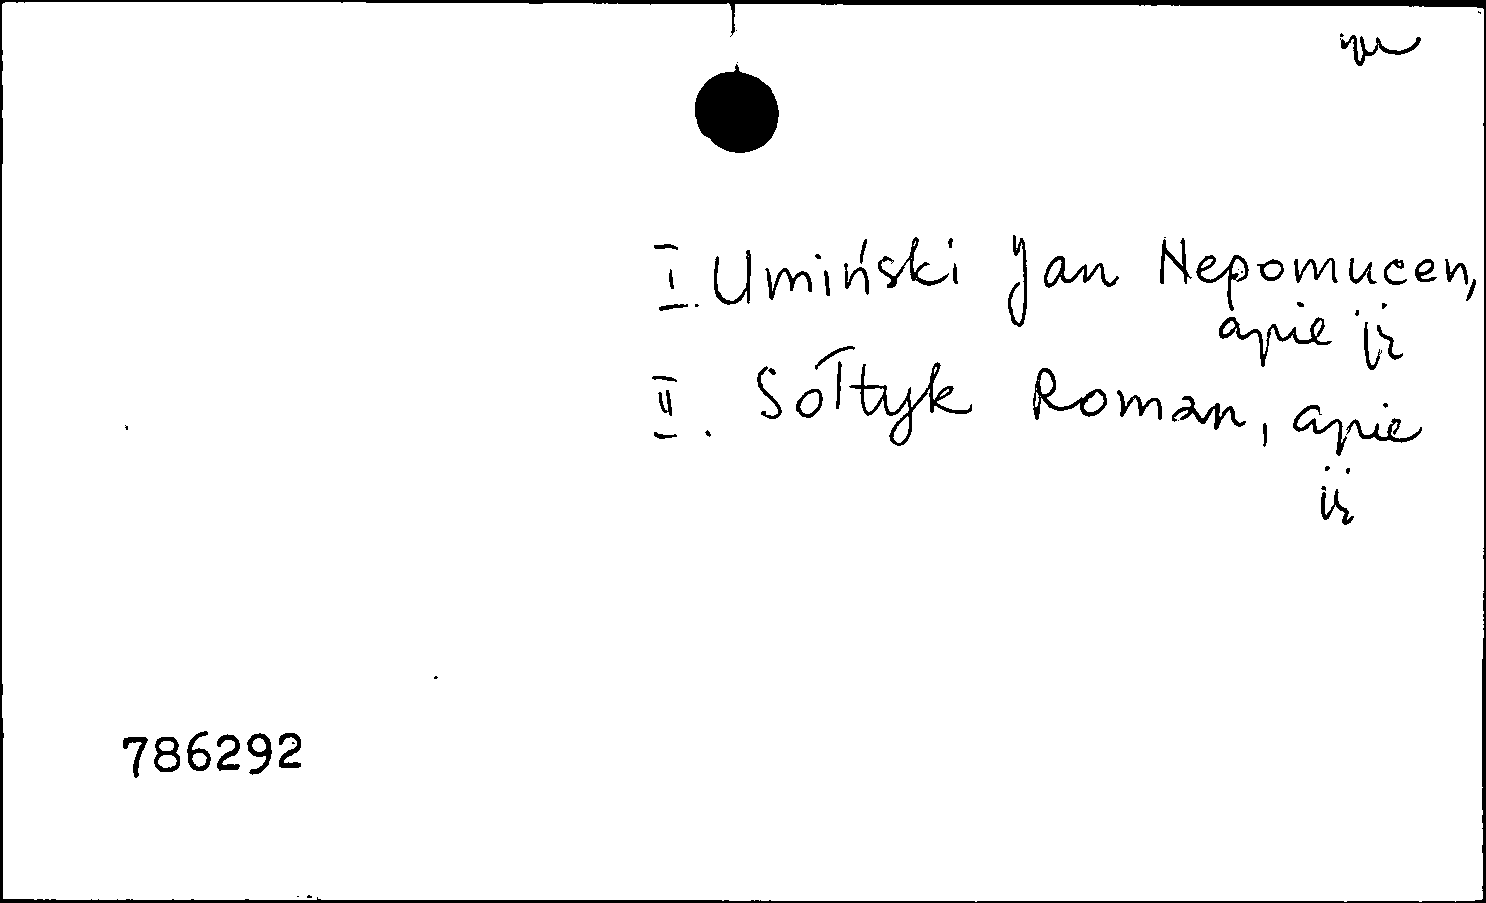 I. Umiński Jan Nepomucen,
apie jį
II. Sołtyk Roman, apie
jį
786292